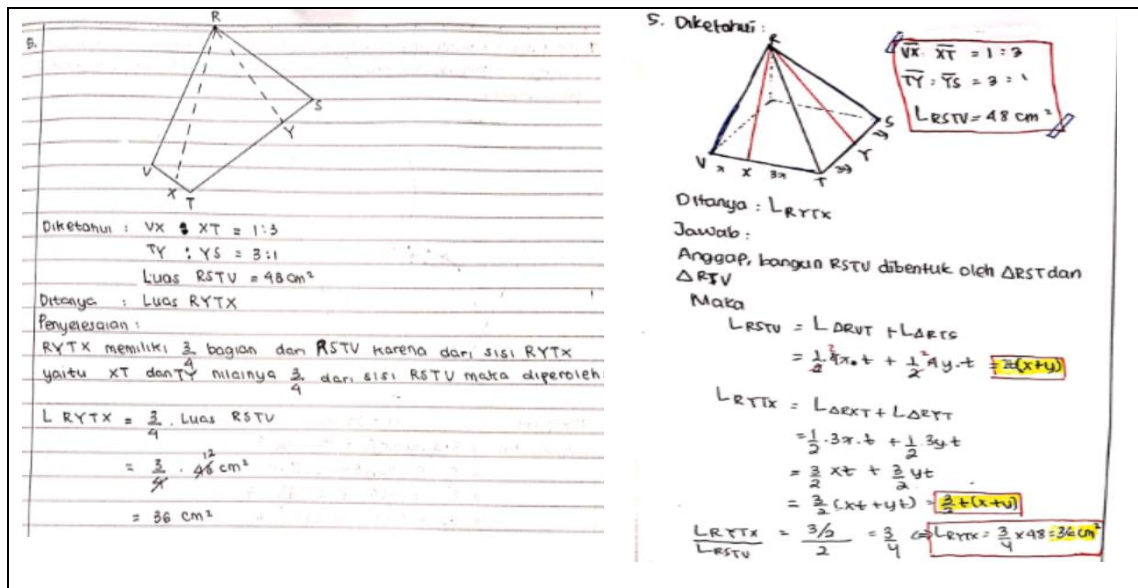 5.
R
S
Y
V
X
T
Diketahui : VX : XT = 1:3
TY : YS = 3:1
Luas RSTV = 48 cm²
Ditanya : Luas RYTX
Penyelesaian :
RYTX memiliki 3/4 bagian dari RSTV karena dari sisi RYTX
yaitu XT dan TY nilainya 3/4 dari sisi RSTV maka diperoleh
L RYTX = 3/4 . Luas RSTV
= 3/4 . 48 12 cm²
= 36 cm²
5. Diketahui :
R
S
Y
V x X 3x T 3y
VX : XT = 1 : 3
TY : YS = 3 : 1
L RSTV = 48 cm²
Ditanya : L RYTX
Jawab :
Anggap, bangun RSTV dibentuk oleh △RST dan
△RTV
Maka
L RSTV = L △RVT + L △RTS
= 1/2 4x.t + 1/2 4y.t = 2t(x+y)
L RYTX = L △RXT + L △RYT
= 1/2 . 3x.t + 1/2 . 3y.t
= 3/2 xt + 3/2 yt
= 3/2 (xt + yt) = 3/2 t(x+y)
L RYTX / L RSTV = 3/2 / 2 = 3/4 ⇔ L RYTX = 3/4 × 48 = 36 cm²